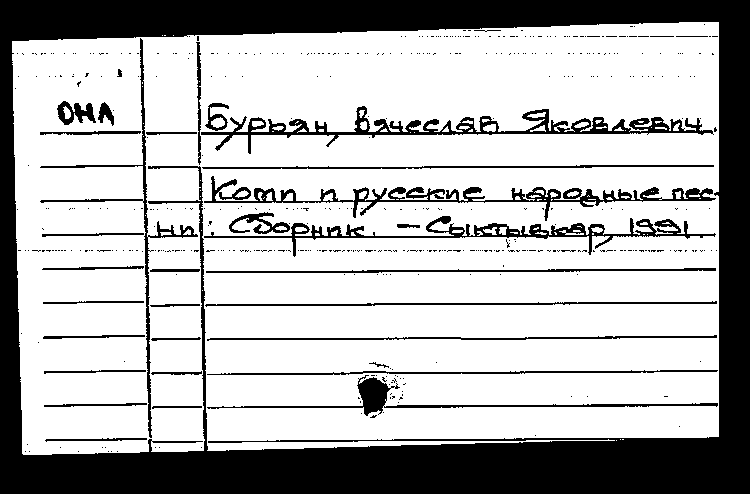 ОНЛ
Бурьян, Вячеслав Яковлевич.
Коми и русские народные пес-
ни: Сборник. – Сыктывкар, 1991.